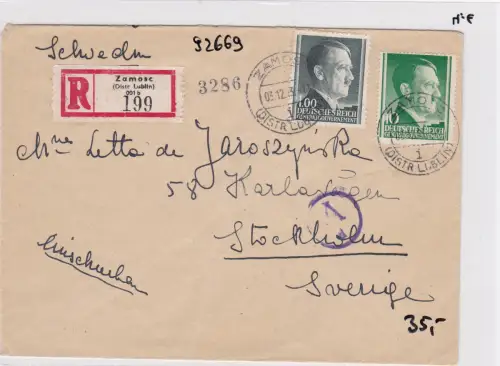 92669
Schweden
R
Zamosc
(Distr Lublin)
001 b
199
3286
ZAMOSC
05.12.
(DISTR LUBLIN)
1.00
DEUTSCHES REICH
GENERALGOUVERNEMENT
ZAMOSC
1
(DISTR LUBLIN)
DEUTSCHES REICH
GENERALGOUVERNEMENT
Mme Letta de Jaroszyńska
58 Karlavägen
Stockholm
Sverige
Einschreiben
35,-